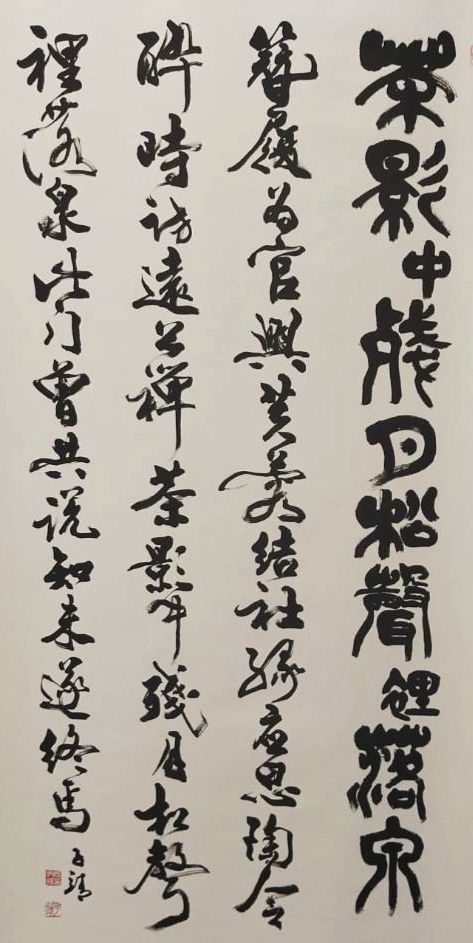 茶影中殘月松聲裡落泉
簪履為官興芙蓉結社緣應思陶令
醉時訪遠公禪茶影中殘月松聲
裡落泉此門曾共說知未遂終焉
子靖